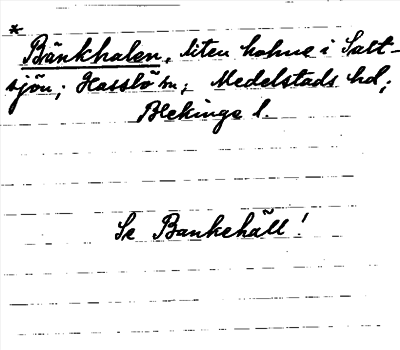 *
Bänkhalen, liten holme i Salt-
sjön; Hasslö sn; Medelstads hd;
Blekinge l.
Se Bankehäll!